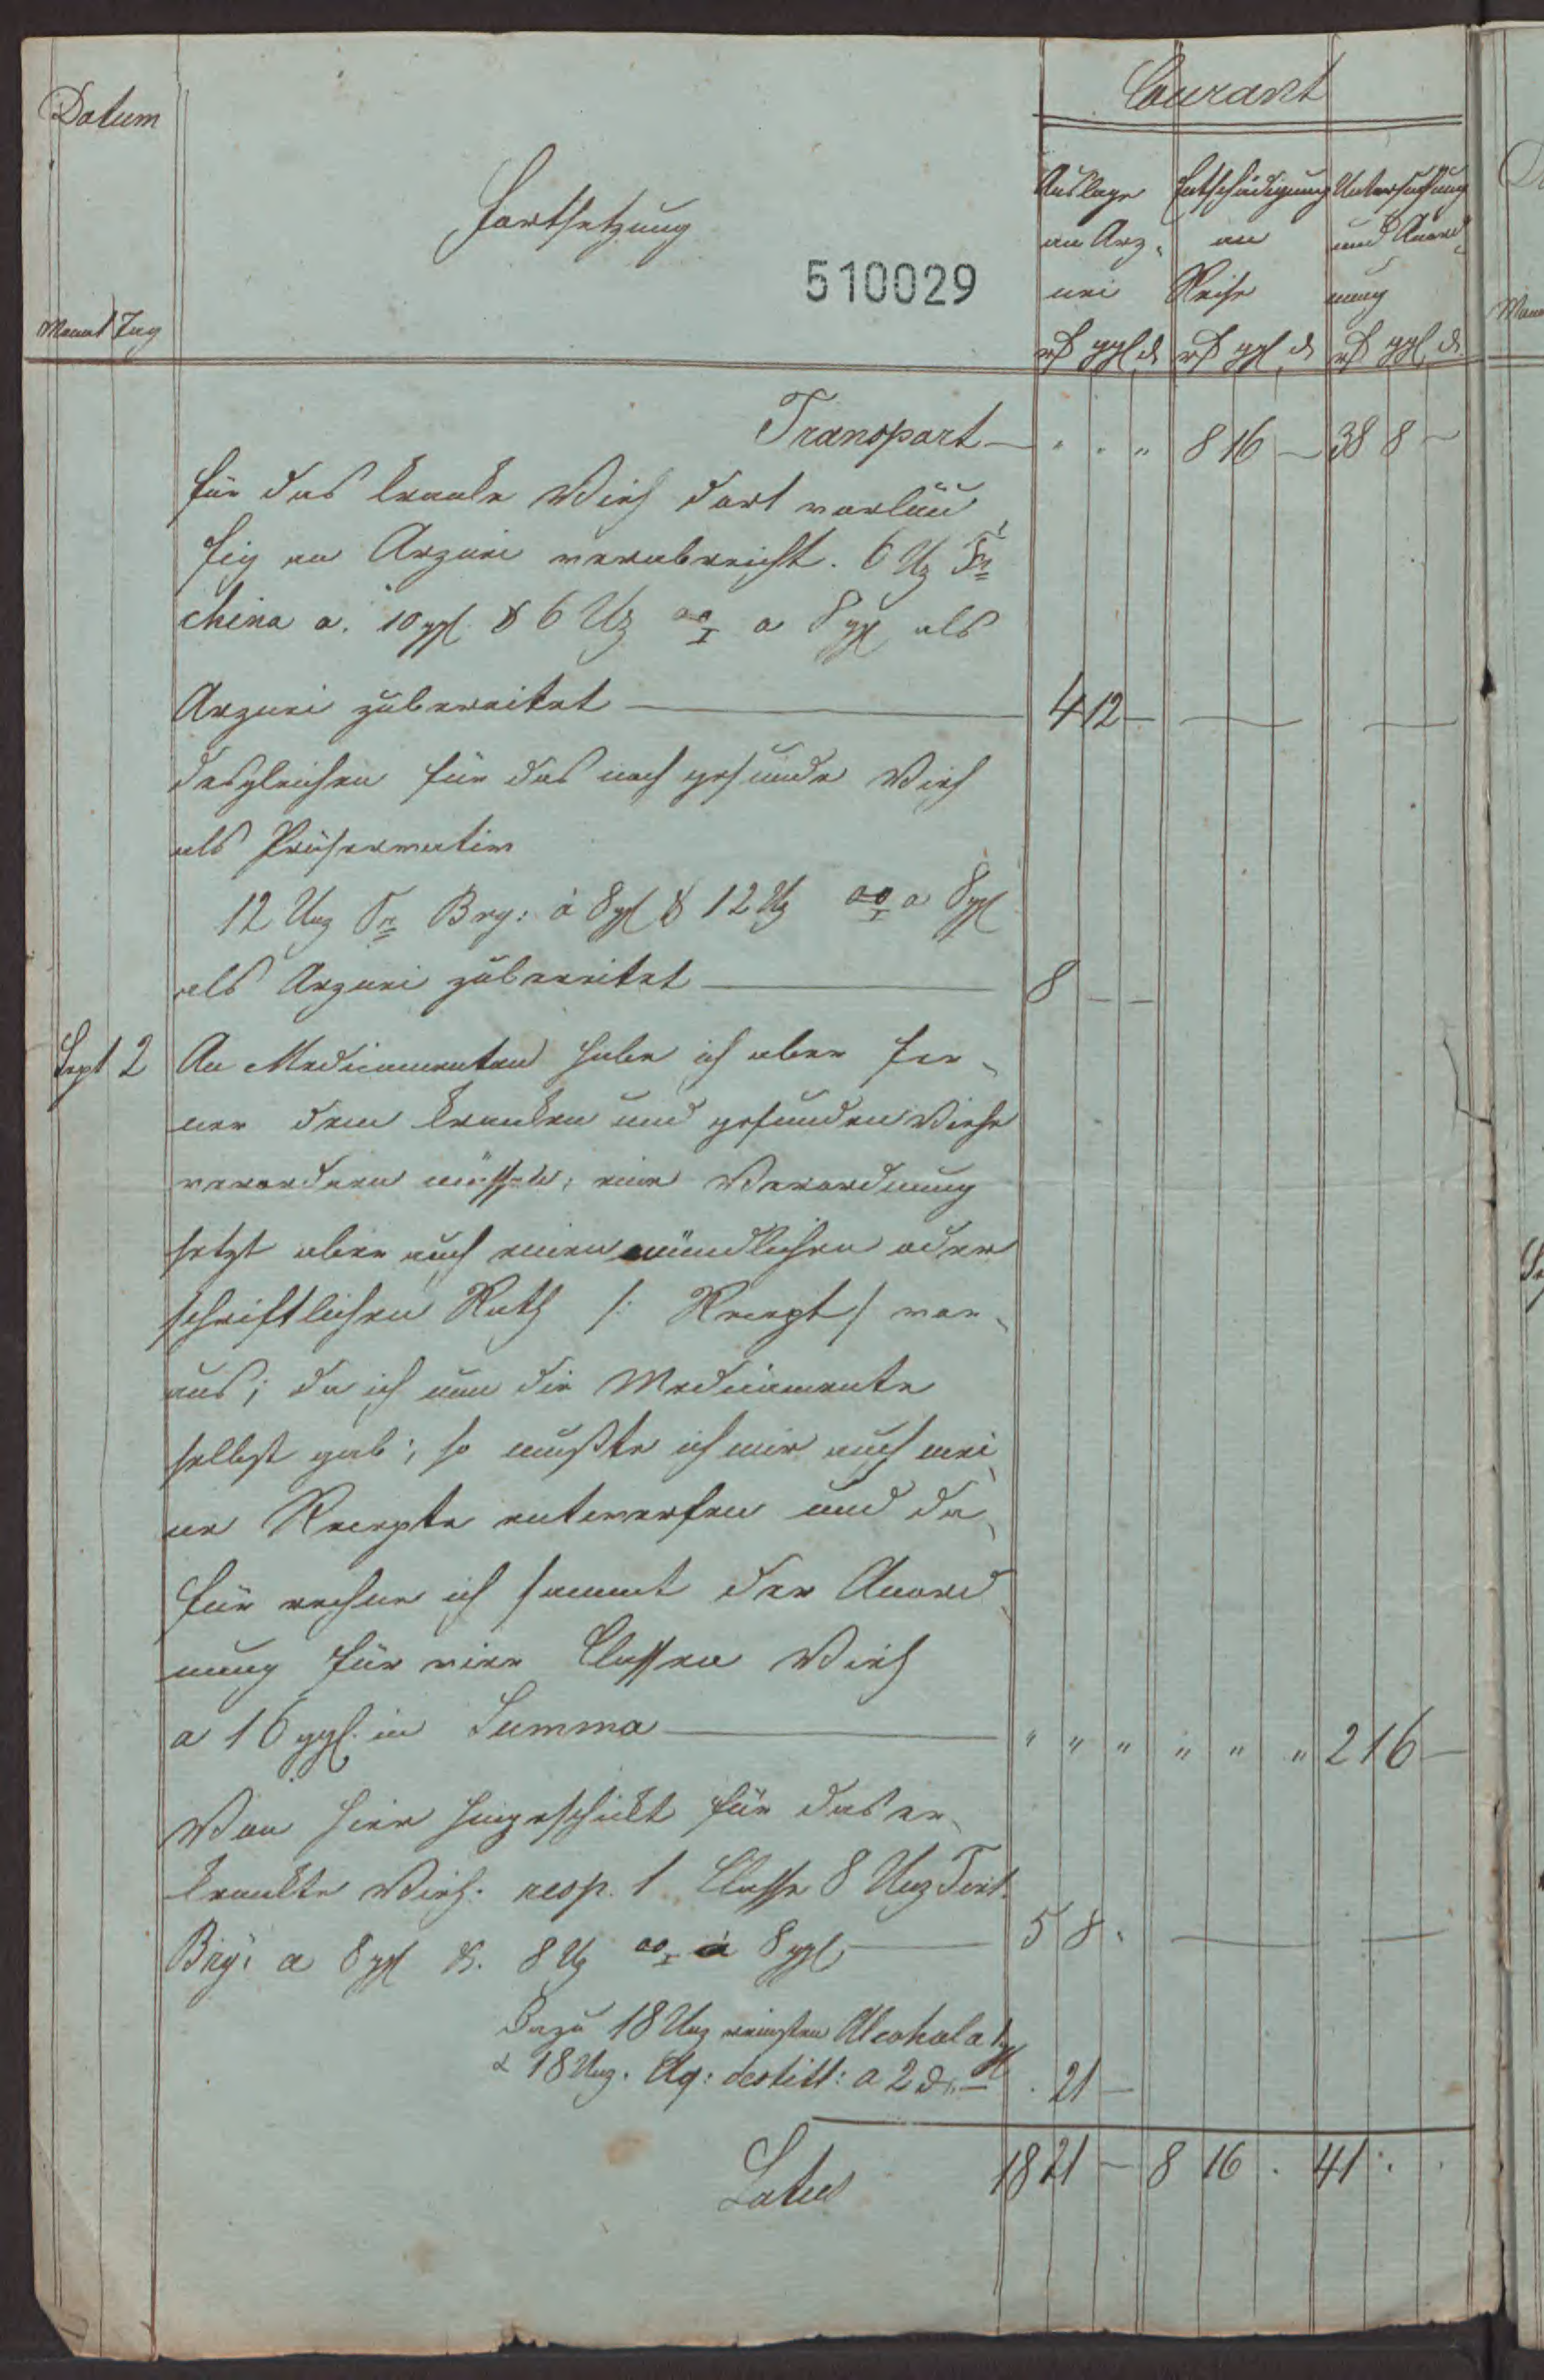 Datum
Monat Tag
Fortsetzung
510029
Courant
Auslage Entschädigung Untersuchung
an Arz- an und Anord-
nei Reise nung
rß ggl d rß ggl d rß ggl d
Transport — " " " 8 16 — 38 8 —
für das kranke Vieh dort vorläu-
fig an Arznei verabreicht. 6 Uz Tr
china a. 10 ggl & 6 Uz a 8 ggl als
Arznei zubereitet — 4 12 —
desgleichen für das noch gesunde Vieh
als Präservativ
12 Unz Tr Bry: à 8 ggl & 12 Uz a 8 ggl
als Arznei zubereitet — 8 — —
Sept 2 An Medicamenten habe ich aber fer-
ner dem kranken und gesunden Viehe
verordnen müssen; eine Verordnung
setzt aber auch einen mündlichen oder
schriftlichen Rath /: Recept/ vor-
aus; da ich nun die Medicamente
selbst gab; so mußte ich mir auch mei-
ne Recepte entwerfen und da-
für rechne ich sammt der Anord-
nung für vier Classen Vieh
a 16 ggl. in Summa — " " " " " " 2 16 —
Von hier hingeschickt für das er-
krankte Vieh. resp. 1 Classe 8 Unz Tinct.
Bry: a 8 ggl &. 8 Uz à 8 ggl — 5 8 .
Dazu 18 Unz reinsten Alcohol a 1 ggl
& 18 Unz. Aq: destill: a 2 d. — . 21 —
Latus 18 21 — 8 16 . 41 . .